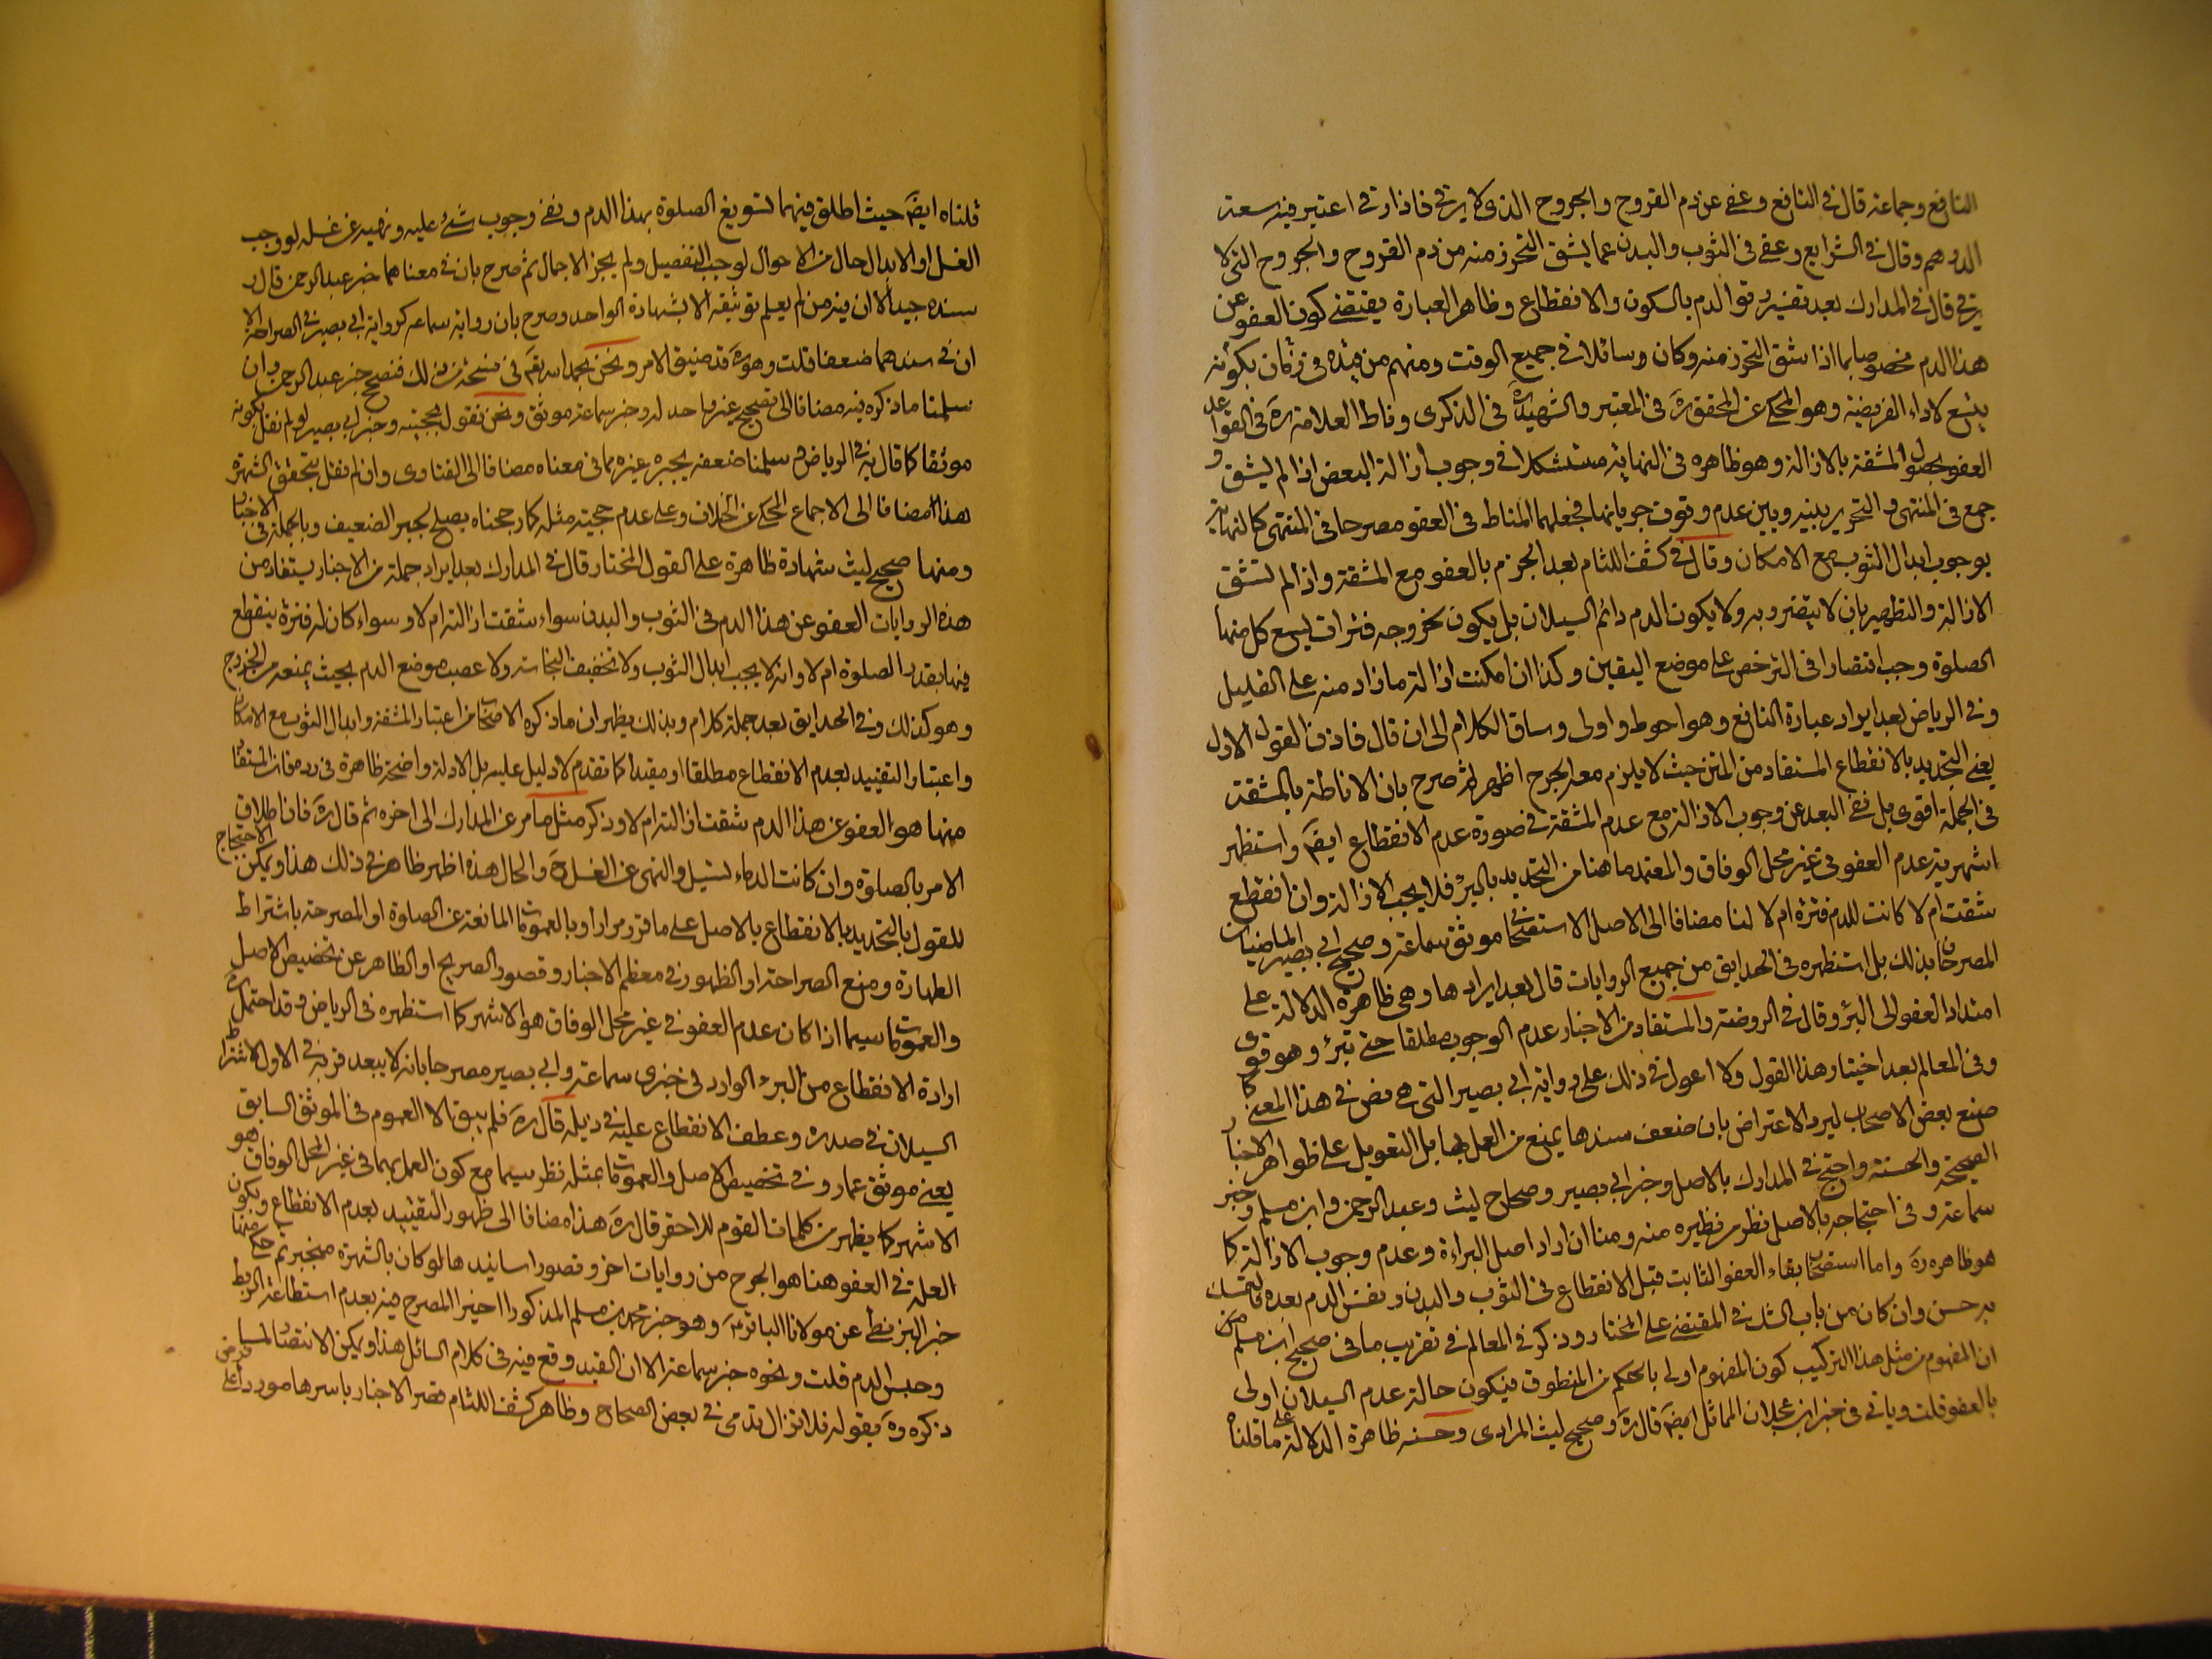 النافع وجماعة قال في النافع وعفى عن دم القروح والجروح الذي لا يرقى فاذا رقى اعتبر فيه سعة
الدرهم وقال في الشرايع وعفى في الثوب والبدن عما يشق التحرز منه من دم القروح والجروح التي لا
يرقى قال في المدارك بعد تفسير رقوا لدم بالسكون والانقطاع وظاهر العبارة يقتضى كون العفو عن
هذا الدم مخصوصا بما اذا شق التحرز منه وكان سائلا في جميع الوقت ومنهم من قيده في زمان بكونه
يتسع لاداء الفريضة وهو المحكى عن المحقق ره في المعتبر والشهيد ره في الذكرى وناط العلامة ره في القواعد
العفو بحصول المشقة بالازالة وهو ظاهره في النهاية مستشكلا في وجوب ازالة البعض اذا لم يشق و
جمع في المنتهى والتحرير بينه وبين عدم وقوف جريانها فجعلهما المناط في العفو مصرحا في المنتهى كالنهاية
بوجوب ابدال الثوب مع الامكان وقال في كشف اللثام بعد الجزم بالعفو مع المشقة واذا لم تشق
الازالة والتطهير بان لا يتضرر به ولا يكون الدم دائم السيلان بل يكون لخروجه فترات يسع كل منها
الصلوة وجب اقتصارا في الترخص على موضع اليقين وكذا ان امكنت ازالة ما زاد منه على القليل
وفي الرياض بعد ايراد عبارة النافع وهو احوط واولى وساق الكلام الى ان قال فاذن القول الاول
يعنى التحديد بالانقطاع المستفاد من المتن حيث لا يلزم معه الحرج اظهر ثم صرح بان الاناطة بالمشقة
في الجملة اقوى بل نفى البعد عن وجوب الازالة مع عدم المشقة في صورة عدم الانقطاع ايضا واستظهر
اشهرية عدم العفو في غير محل الوفاق والمعتمد ما هنا من التحديد بالبرء فلا يجب الازالة وان انقطع
شقت ام لا كانت للدم فترة ام لا لنا مضافا الى الاصل الاستصحابي موثق سماعة وصحيح ابي بصير الماضيان
المصرحان بذلك بل استظهره في الحدايق من جميع الروايات قال بعد ايرادها وهي ظاهرة الدلالة على
امتداد العفو الى البرء وقال في الروضة والمستفاد من الاخبار عدم الوجوب مطلقا حتى تبرء وهو قوى
وفي المعالم بعد اختيار هذا القول ولا اعول في ذلك على رواية ابي بصير التي هي نص في هذا المعنى كما
صنع بعض الاصحاب ليرد الاعتراض بان ضعف سندها يمنع من العمل بها بل التعويل على ظواهر الاخبار
الصحيحة والحسنة واحتج في المدارك بالاصل وخبر ابي بصير وصحاح ليث وعبد الرحمن وابن مسلم وخبر
سماعة وفي احتجاجه بالاصل نظر من نظيره منه ومنا ان اراد اصل البراءة وعدم وجوب الازالة كما
هو ظاهره ره واما استصحاب بقاء العفو الثابت قبل الانقطاع في الثوب والبدن ونفس الدم بعده فالتمسك
به حسن وان كان من باب الشك في المقتضى على المختار وذكر في المعالم في تقريب ما في صحيح ابن مسلم من
ان المفهوم من مثل هذا التركيب كون المفهوم اولى بالحكم من المنطوق فيكون حالة عدم السيلان اولى
بالعفو قلت وياتى في خبر ابن عجلان المماثل ايضا قال ره وصحيح ليث المرادى وحسنه ظاهرة الدلالة على ما قلناه
قلناه ايضا حيث اطلق فيهما لتسويغ الصلوة بهذا الدم ونفى وجوب شئ عليه ونهيه عن غسله لو وجب
الغسل او الابدال حال من الاحوال لوجب التفصيل ولم يجز الاجمال ثم صرح بان في معناهما خبر عبد الرحمن قال و
سنده جيد الا ان فيه من لم يعلم توثيقه الا بشهادة الواحد وصرح بان رواية سماعة كرواية ابي بصير في الصراحة الا
ان في سندهما ضعفا قلت وهو ره قد ضيق الامر ونحن بحمد الله تعالى في فسحة من ذلك فنصحح خبر عبد الرحمن وان
سلمنا ما ذكره فيه مضافا الى تصحيح غير واحد له وخبر سماعة موثق ونحن نقول بحجيته وخبر ابي بصير لو لم نقل بكونه
موثقا كما قال به في الرياض وسلمنا ضعفه يجبره غيره مما في معناه مضافا الى الفتاوى وان لم نقل بتحقق الشهرة
بهذا مضافا الى الاجماع المحكى عن الخلاف وعلى عدم حجيته مثله كما رجحناه يصلح لجبر الضعيف وبالجملة في الاخبار
ومنها صحيح ليث شهادة ظاهرة على القول المختار قال في المدارك بعد ايراد جملة من الاخبار يستفاد من
هذه الروايات العفو عن هذا الدم في الثوب والبدن سواء شقت ازالته ام لا وسواء كان له فترة ينقطع
فيها بقدر الصلوة ام لا وانه لا يجب ابدال الثوب ولا تخفيف النجاسة ولا عصب موضع الدم بحيث يمنعه من الخروج
وهو كذلك وفي الحدايق بعد جملة كلام وبذلك يظهر ان ما ذكره الاصحاب من اعتبار المشقة وابدال الثوب مع الامكان
واعتبار التقييد بعدم الانقطاع مطلقا او مقيدا كما تقدم لا دليل عليه بل الادلة واضحة ظاهرة في رده فان المستفاد
منها هو العفو عن هذا الدم شقت ازالته ام لا وذكر مثل ما مر عن المدارك الى اخره ثم قال ره فان اطلاق
الامر بالصلوة وان كانت الدماء تسيل والنهى عن الغسل ره والحال هذه اظهر ظاهر في ذلك هذا ويمكن الاحتجاج
للقول بالتحديد بالانقطاع بالاصل على ما قرر مرارا وبالعمومات المانعة عن الصلوة او المصرحة باشتراط
الطهارة ومنع الصراحة او الظهور في معظم الاخبار وقصور الصريح او الظاهر عن تخصيص الاصل
والعمومات سيما اذا كان عدم العفو في غير محل الوفاق هو الاشهر كما استظهره في الرياض وقد احتمل ره
ارادة الانقطاع من البرء الوارد في خبرى سماعة وابي بصير مصرحا بانه لا يبعد قربه في الاول لاشتراط
السيلان في صدره وعطف الانقطاع عليه في ذيله قال ره فلم يبق الا العموم في الموثق السابق
يعنى موثق عمار وفي تخصيص الاصل والعمومات بمثله نظر سيما مع كون العمل بهما في غير المحل الوفاق هو
الاشهر كما يظهر من كلمات القوم للاحقر قال ره هذا مضافا الى ظهور التقييد بعدم الانقطاع وبكون
العلة في العفو هنا هو الحرج من روايات اخر وقصور اسانيدها لو كان بالشهرة منجبر ثم حكى منها
خبر البزنطي عن مولانا الباقر ع وهو خبر محمد بن مسلم المذكور اخيرا المصرح فيه بعدم استطاعة الربط
وحبس الدم قلت ونحوه خبر سماعة الا ان القيد وقع فيه في كلام السائل هذا ويمكن الانتصار لما
ذكره ره بقوله فلا تزال تدمى في بعض الصحاح وظاهر كشف اللثام قصر الاخبار باسرها موردا على